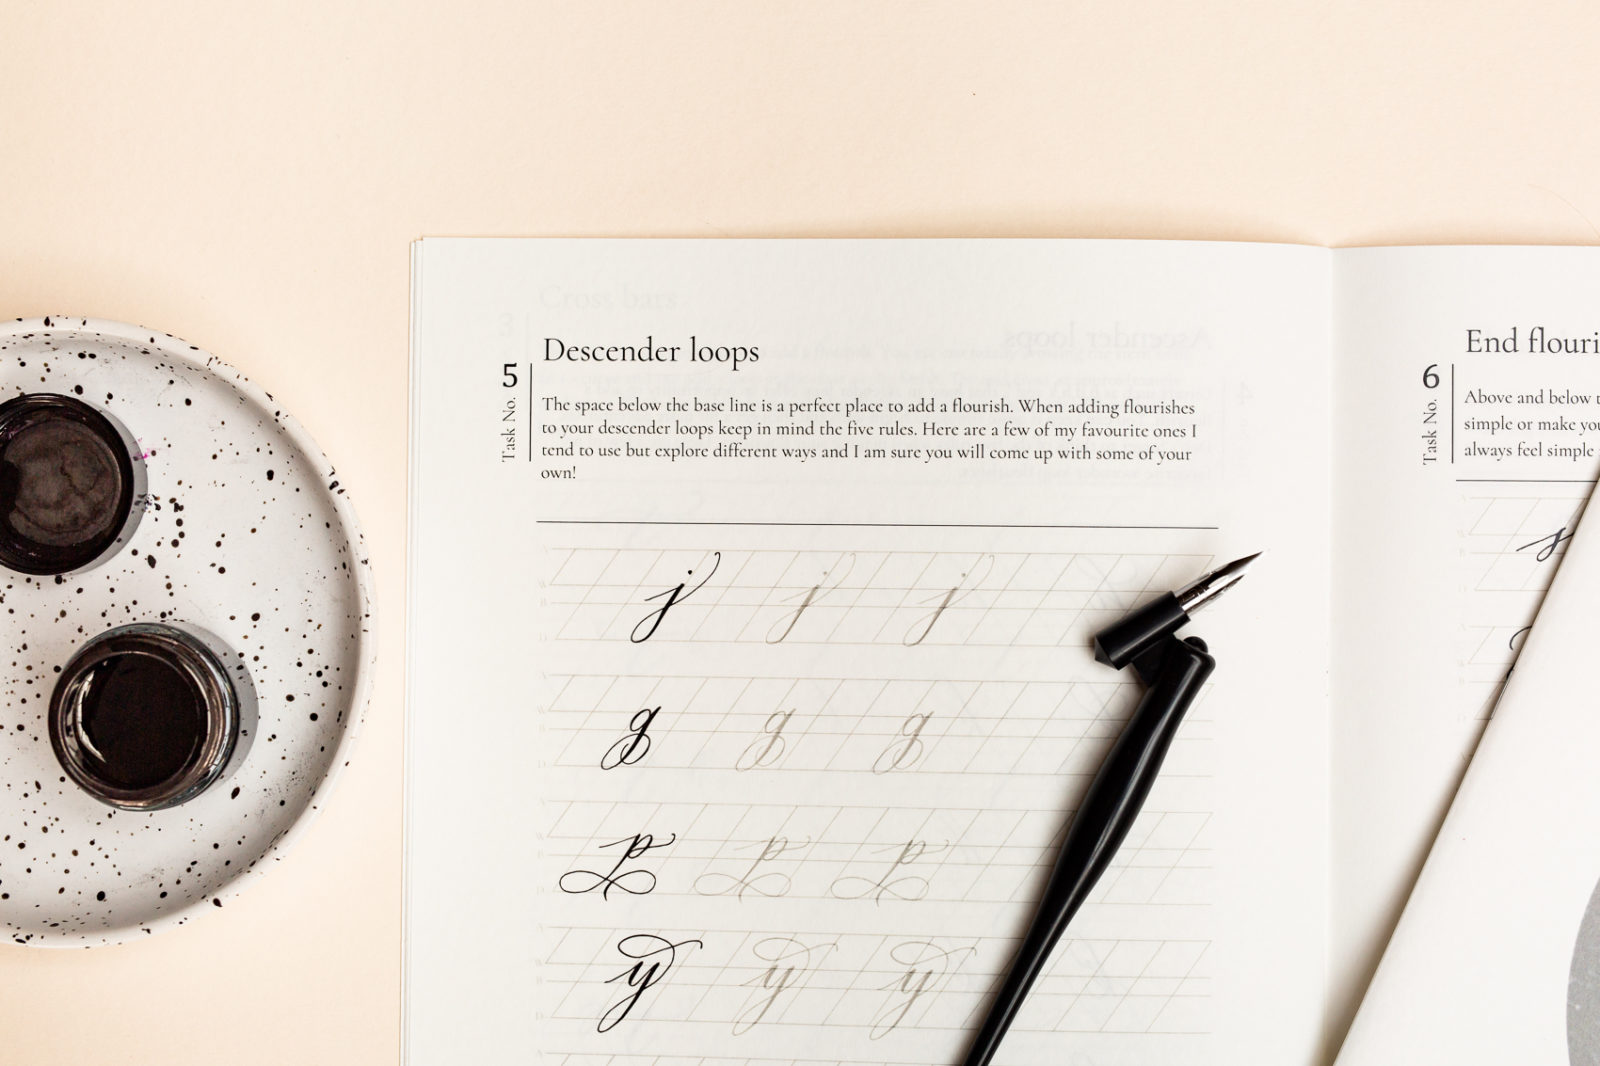 Cross bars
Ascender loops
Descender loops
5
Task No.
The space below the base line is a perfect place to add a flourish. When adding flourishes
to your descender loops keep in mind the five rules. Here are a few of my favourite ones I
tend to use but explore different ways and I am sure you will come up with some of your
own!
j j j
g g g
p p p
y y y
End flouri
6
Task No.
Above and below
simple or make you
always feel simple